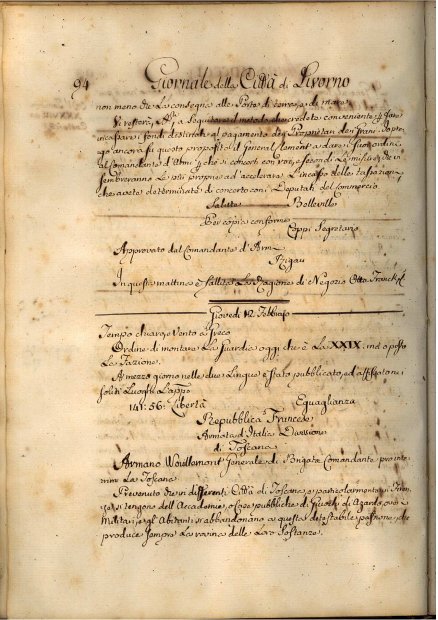 94 Giornale della Città di Livorno
non meno che la consegna alle Porte di terra, e di mare
Vi resterà a seguitare il metodo che credete conveniente p. fare
incassare i fondi destinati al pagamento de Proprietari dei grani.
ancora su questo proposito il General Clement a dare i suoi ordini
al Comandante d'Armi, perchè si concerti con voi, e secondi le misure che vi
sembreranno le più proprie ad accelerare l'incasso delle tassazioni,
che avete determinate di concerto coi Deputati del Commercio.
Salute Belleville
Per copia conforme
Coppi Segretario
Approvato dal Comandante d'Armi
Rigau
In questa mattina è fallita la Ragione di Negozio Otto Franck
Giovedì 12 Febbraio
Tempo chiaro, e Vento a Greco
Ordine di montare la Guardia oggi che è la XXIX. ma a posto
La Fazione.
A mezzo giorno nelle due Lingue è stato pubblicato, ed affisso ne i
soliti Luoghi L'appo
141: 56: Libertà Eguaglianza
Repubblica Francese
Armata d'Italia Divisione
di Toscana
Generale di Brigata Comandante
La Toscana
Prevenuto che in differenti Città di Toscana, e particolarmente in
si tengono dell'Accademie, o Case pubbliche di Giuochi di Azardo, ove i
Militari, e gl'Abitanti s'abbandonano a questa detestabile passione, che
produce sempre la rovina delle loro Sostanze.